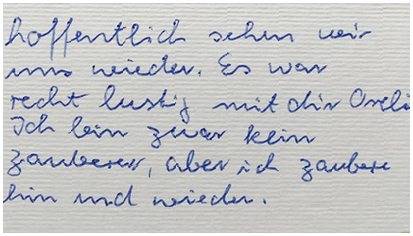 hoffentlich sehen wir
uns wieder. Es war
recht lustig mit dir
Ich bin zwar kein
zauberer, aber ich zaubere
hin und wieder.